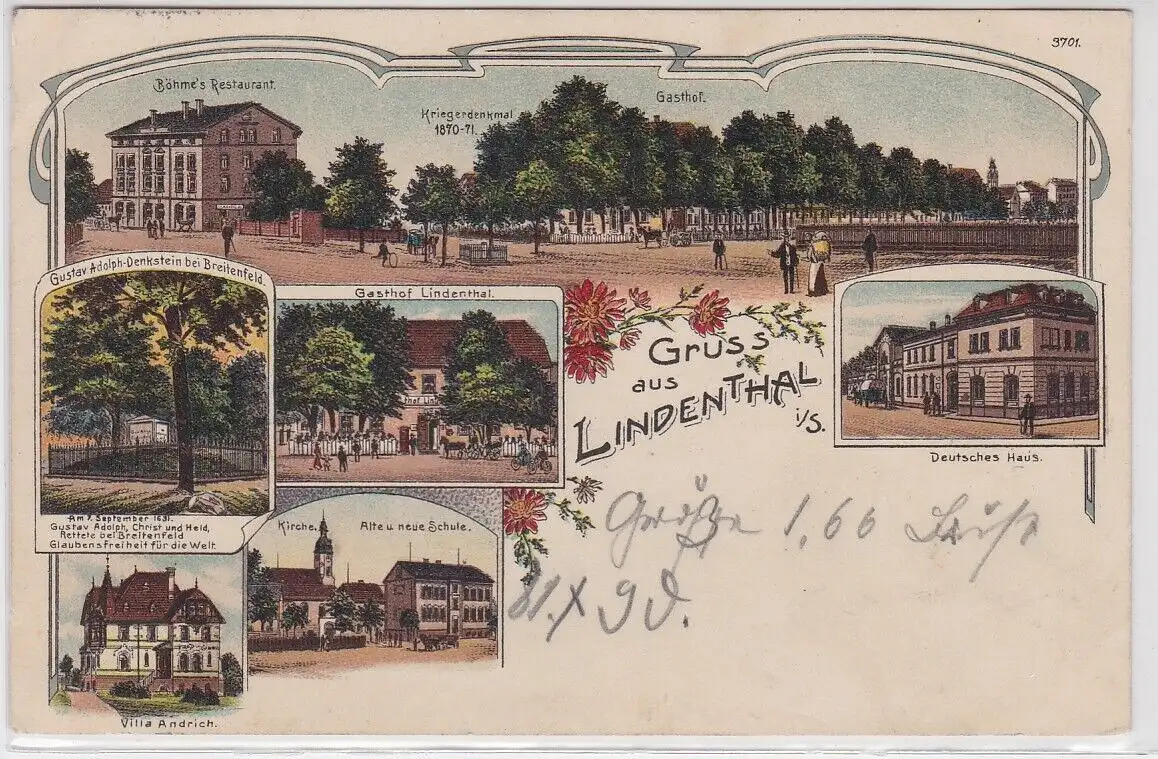 3701.
Böhme's Restaurant.
Kriegerdenkmal
1870-71.
Gasthof.
Gustav Adolph-Denkstein bei Breitenfeld.
Gasthof Lindenthal.
Gruss
aus
LINDENTHAL
i/S.
Deutsches Haus.
Am 7. September 1631.
Gustav Adolph, Christ und Held,
Rettete bei Breitenfeld
Glaubensfreiheit für die Welt.
Kirche.
Alte u neue Schule.
Größe 1,66
Villa Andrich.